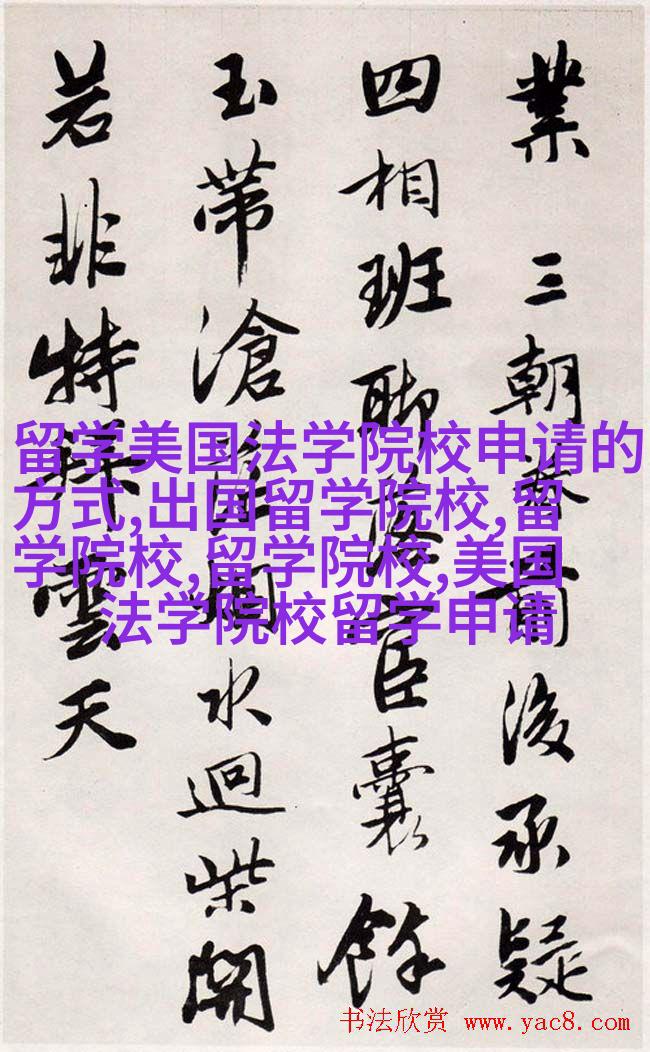 業三朝後承疑
四相班聯臣囊餘
玉帶滄水迴柴關
若非特雲天
留学美国法学院校申请的
方式,出国留学院校,留
学院校,留学院校,美国
法学院校留学申请
书法欣赏 www.yac8.com